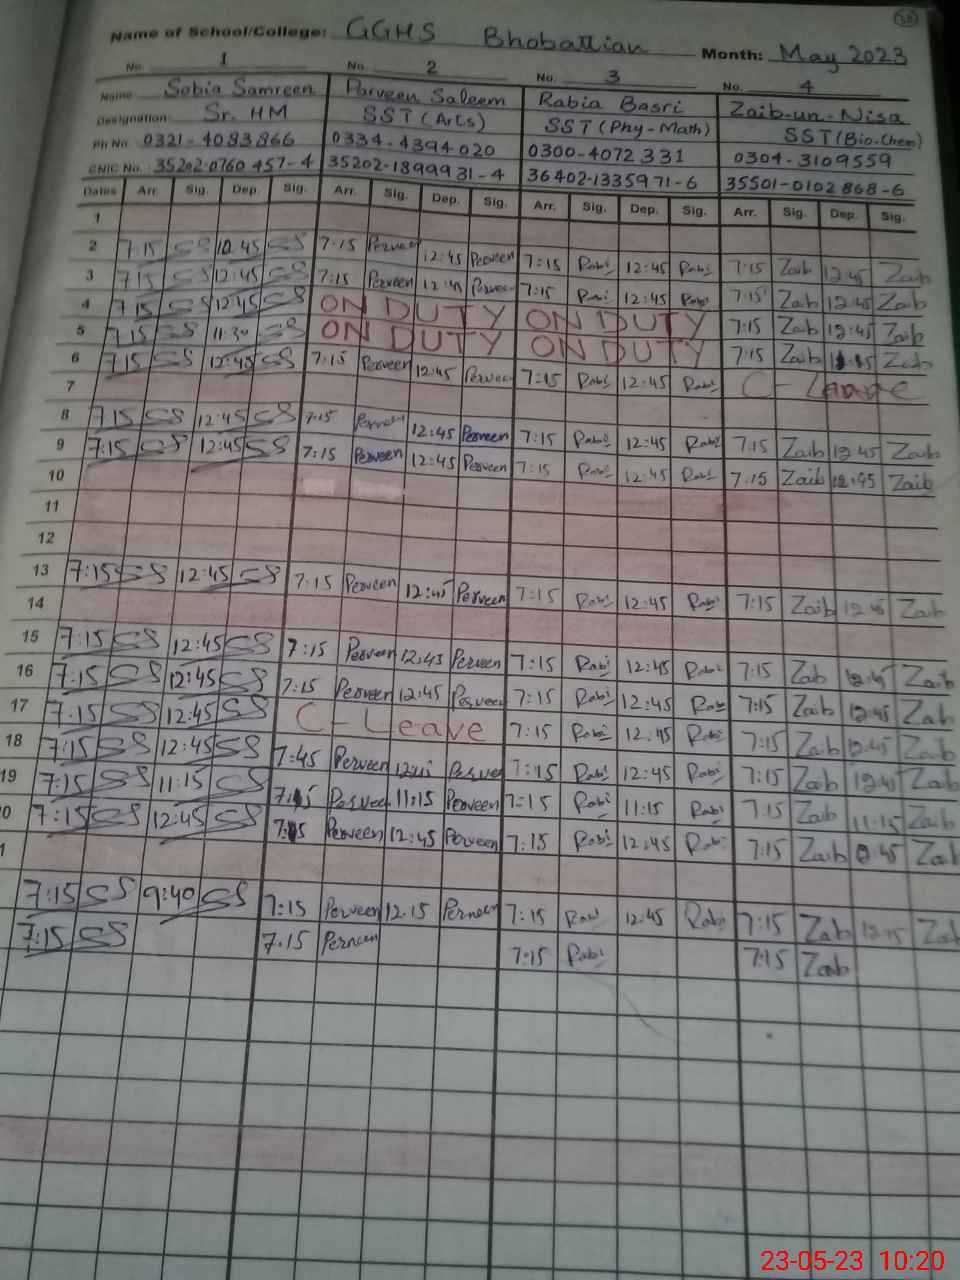 38
Name of School/College: GGHS Bhobattian Month: May 2023
No. 1 No. 2 No. 3 No. 4
Name Sobia Samreen Parveen Saleem Rabia Basri Zaib-un-Nisa
Designation Sr. HM SST (Arts) SST (Phy-Math) SST (Bio-Chem)
Ph No. 0321-4083866 0334-4394020 0300-4072331 0304-3109559
CNIC No. 35202-0760457-4 35202-1899931-4 36402-1335971-6 35501-0102868-6
Dates Arr. Sig. Dep. Sig. Arr. Sig. Dep. Sig. Arr. Sig. Dep. Sig. Arr. Sig. Dep. Sig.
1
2 7:15 SS 12:45 SS 7:15 Perveen 12:45 Perveen 7:15 Rabi 12:45 Rabi 7:15 Zaib 12:45 Zaib
3 7:15 SS 12:45 SS 7:15 Perveen 12:45 Perveen 7:15 Rabi 12:45 Rabi 7:15 Zaib 12:45 Zaib
4 7:15 SS 12:45 SS ON DUTY ON DUTY 7:15 Zaib 12:45 Zaib
5 7:15 SS 11:30 SS ON DUTY ON DUTY 7:15 Zaib Zaib
6 7:15 SS 12:45 SS 7:15 Perveen 12:45 Perveen 7:15 Rabi 12:45 Rabi C-Leave
7
8 7:15 SS 12:45 SS 7:15 Perveen 12:45 Perveen 7:15 Rabi 12:45 Rabi 7:15 Zaib 12:45 Zaib
9 7:15 SS 12:45 SS 7:15 Perveen 12:45 Perveen 7:15 Rabi 12:45 Rabi 7:15 Zaib 12:45 Zaib
10
11
12
13 7:15 SS 12:45 SS 7:15 Perveen 12:45 Perveen 7:15 Rabi 12:45 Rabi 7:15 Zaib 12:45 Zaib
14
15 7:15 SS 12:45 SS 7:15 Perveen 12:45 Perveen 7:15 Rabi 12:45 Rabi 7:15 Zaib 12:45 Zaib
16 7:15 SS 12:45 SS 7:15 Perveen 12:45 Perveen 7:15 Rabi 12:45 Rabi 7:15 Zaib 12:45 Zaib
17 7:15 SS 12:45 SS C-Leave 7:15 Rabi 12:45 Rabi 7:15 Zaib 12:45 Zaib
18 7:15 SS 12:45 SS 7:45 Perveen 12:45 Perveen 7:15 Rabi 12:45 Rabi 7:15 Zaib 12:45 Zaib
19 7:15 SS 11:15 SS 7:15 Perveen 11:15 Perveen 7:15 Rabi 11:15 Rabi 7:15 Zaib 11:15 Zaib
0 7:15 SS 12:45 SS 7:15 Perveen 12:45 Perveen 7:15 Rabi 12:45 Rabi 7:15 Zaib 12:45 Zaib
1
7:15 SS 9:40 SS 7:15 Perveen 12.15 Perveen 7:15 Rabi 12:45 Rabi 7:15 Zaib Zai
7:15 SS 7.15 Perveen 7:15 Rabi 7:15 Zaib
23-05-23 10:20